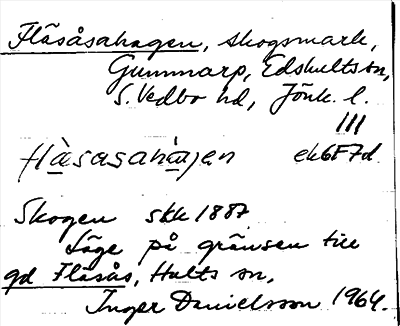 Flåsåsahagen, skogsmark,
Gummarp, Edshults sn,
S. Vedbo hd, Jönk. l.
III
ek6F7d.
Skogen skk 1887.
Läge på gränsen till
gd Flåsås, Hults sn,
Inger Danielsson 1964.